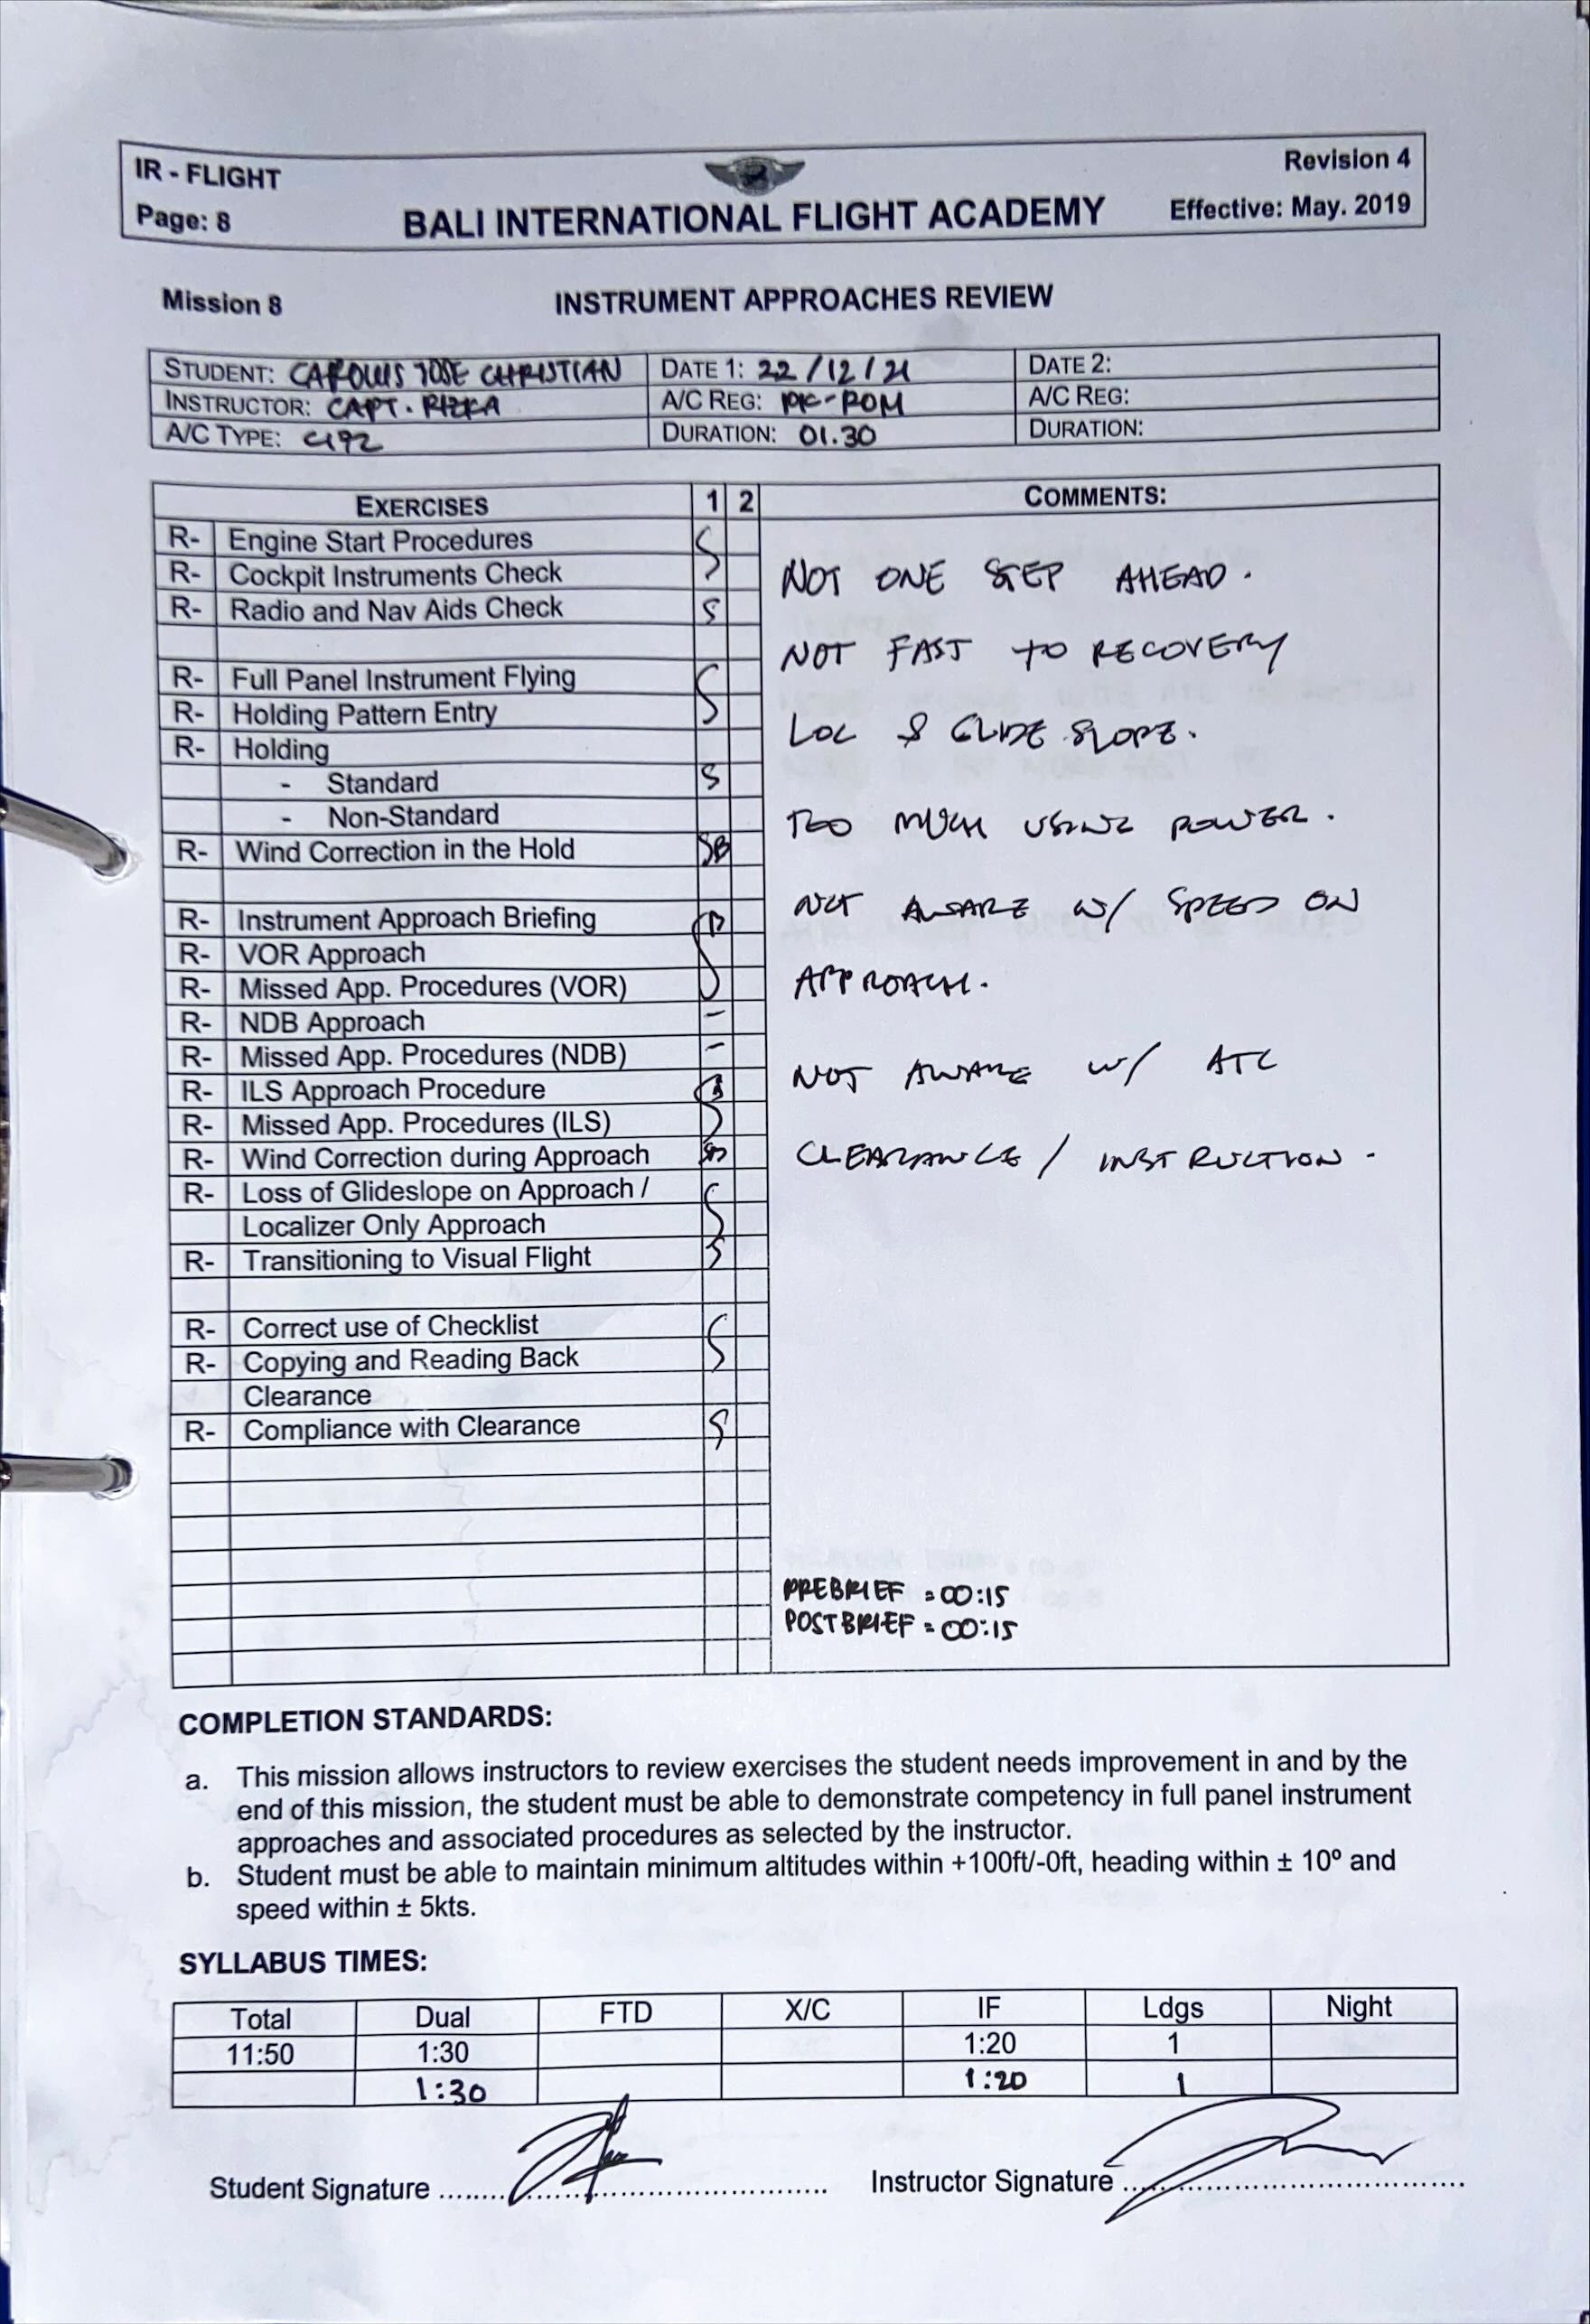 IR - FLIGHT
Revision 4
Page: 8
BALI INTERNATIONAL FLIGHT ACADEMY
Effective: May. 2019
Mission 8
INSTRUMENT APPROACHES REVIEW
STUDENT: CAROLUS JOSE CHRISTIAN DATE 1: 22/12/21 DATE 2:
INSTRUCTOR: CAPT. RIZKA A/C REG: PK-ROM A/C REG:
A/C TYPE: C172 DURATION: 01.30 DURATION:
EXERCISES 1 2 COMMENTS:
R- Engine Start Procedures S
R- Cockpit Instruments Check
R- Radio and Nav Aids Check S
R- Full Panel Instrument Flying S
R- Holding Pattern Entry
R- Holding
- Standard S
- Non-Standard
R- Wind Correction in the Hold SB
R- Instrument Approach Briefing
R- VOR Approach
R- Missed App. Procedures (VOR)
R- NDB Approach -
R- Missed App. Procedures (NDB) -
R- ILS Approach Procedure
R- Missed App. Procedures (ILS)
R- Wind Correction during Approach
R- Loss of Glideslope on Approach / S
Localizer Only Approach
R- Transitioning to Visual Flight S
R- Correct use of Checklist S
R- Copying and Reading Back
Clearance
R- Compliance with Clearance S
NOT ONE STEP AHEAD.
NOT FAST TO RECOVERY
LOC & GLIDE SLOPE.
TOO MUCH USING POWER.
NOT AWARE W/ SPEED ON
APPROACH.
NOT AWARE W/ ATC
CLEARANCE / INSTRUCTION.
PREBRIEF = 00:15
POSTBRIEF = 00:15
COMPLETION STANDARDS:
a. This mission allows instructors to review exercises the student needs improvement in and by the
end of this mission, the student must be able to demonstrate competency in full panel instrument
approaches and associated procedures as selected by the instructor.
b. Student must be able to maintain minimum altitudes within +100ft/-0ft, heading within ± 10º and
speed within ± 5kts.
SYLLABUS TIMES:
Total Dual FTD X/C IF Ldgs Night
11:50 1:30 1:20 1
1:30 1:20 1
Student Signature ........ Instructor Signature ........